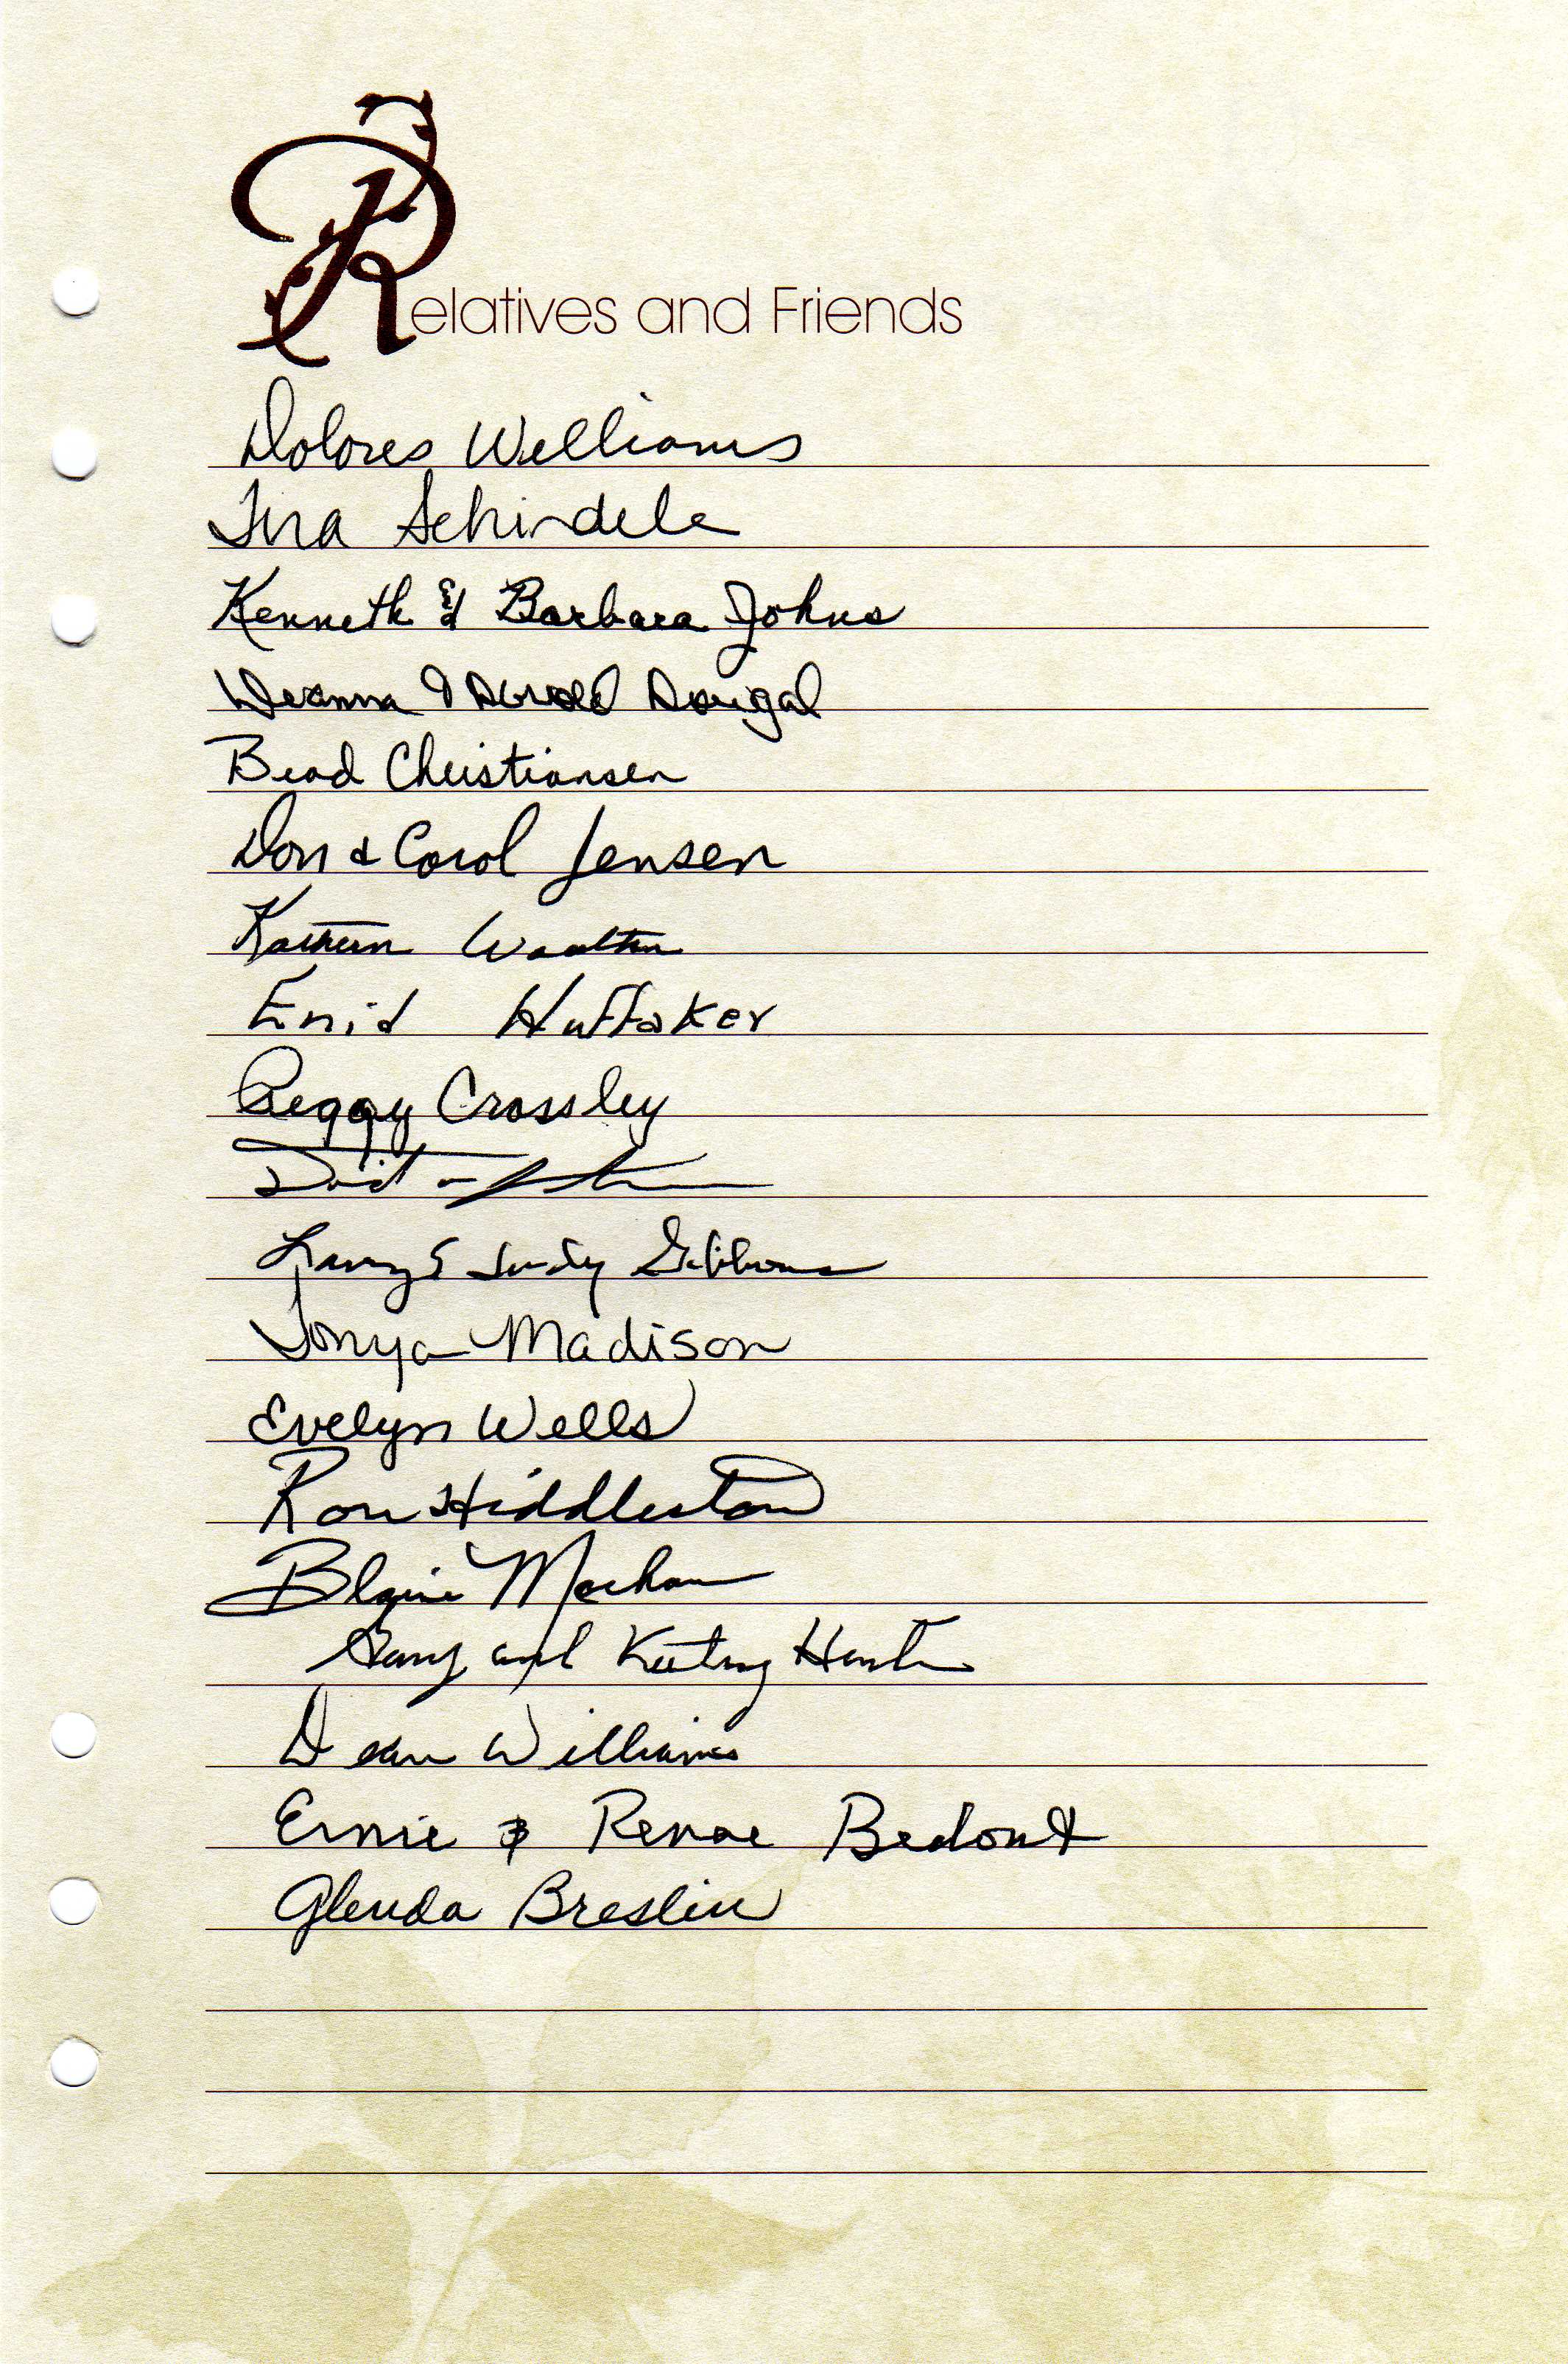 Relatives and Friends
Dolores Williams
Tina Schindele
Kenneth & Barbara Johns
Deanna & Dougal
Brad Christiansen
Don & Carol Jensen
Enid Huffaker
Peggy Crossley
David
Larry & Judy Gibbons
Tonya Madison
Evelyn Wells
Ron Hiddleston
Blaine
Gary and
Dean Williams
Ernie & Renae Bedont
Glenda Breslin